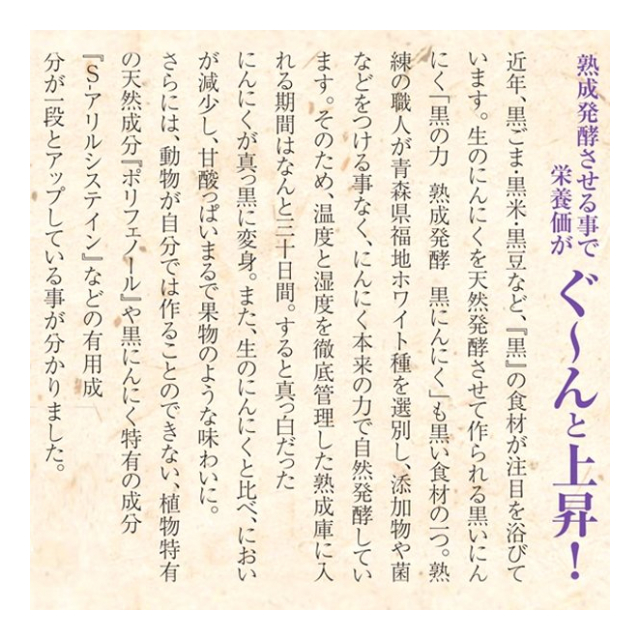 熟成発酵させる事で
栄養価が
ぐ〜んと上昇！
近年、黒ごま・黒米・黒豆など、『黒』の食材が注目を浴びて
います。生のにんにくを天然発酵させて作られる黒いにん
にく「黒の力　熟成発酵　黒にんにく」も黒い食材の一つ。熟
練の職人が青森県福地ホワイト種を選別し、添加物や菌
などをつける事なく、にんにく本来の力で自然発酵してい
ます。そのため、温度と湿度を徹底管理した熟成庫に入
れる期間はなんと三十日間。すると真っ白だった
にんにくが真っ黒に変身。また、生のにんにくと比べ、におい
が減少し、甘酸っぱいまるで果物のような味わいに。
さらには、動物が自分では作ることのできない、植物特有
の天然成分『ポリフェノール』や黒にんにく特有の成分
『S-アリルシステイン』などの有用成
分が一段とアップしている事が分かりました。